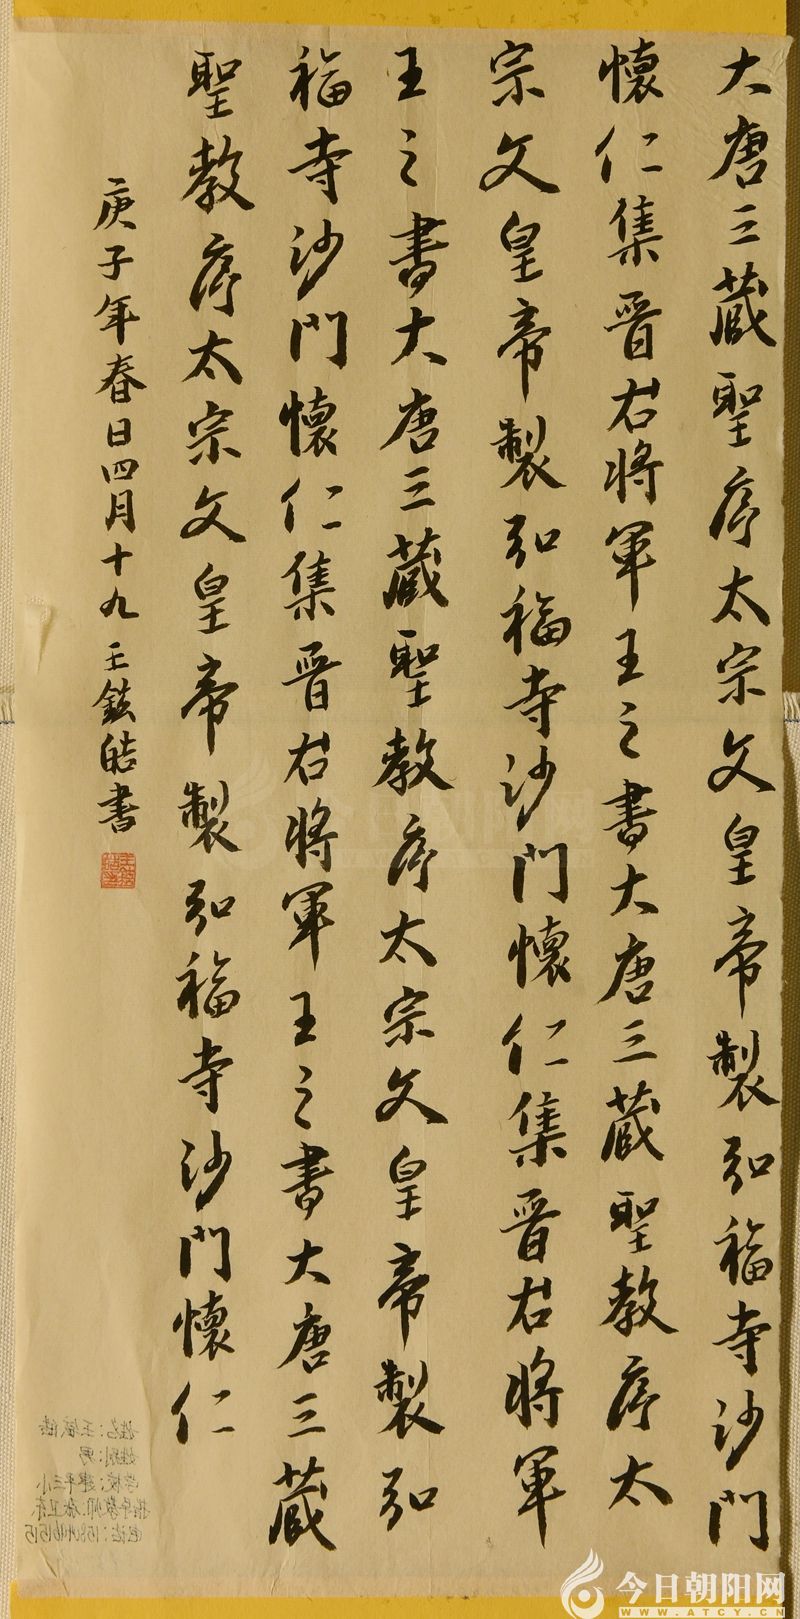 大唐三藏聖序太宗文皇帝製弘福寺沙門
懷仁集晋右將軍王之書大唐三藏聖教序太
宗文皇帝製弘福寺沙門懷仁集晋右將軍
王之書大唐三藏聖教序太宗文皇帝製弘
福寺沙門懷仁集晋右將軍王之書大唐三藏
聖教序太宗文皇帝製弘福寺沙門懷仁
庚子年春日四月十九王鋐皓書
姓名：王
性别：男
学校：建平三小
指导教师
电话：
今日朝阳网
今日朝阳网
WWW.ATCY.CN